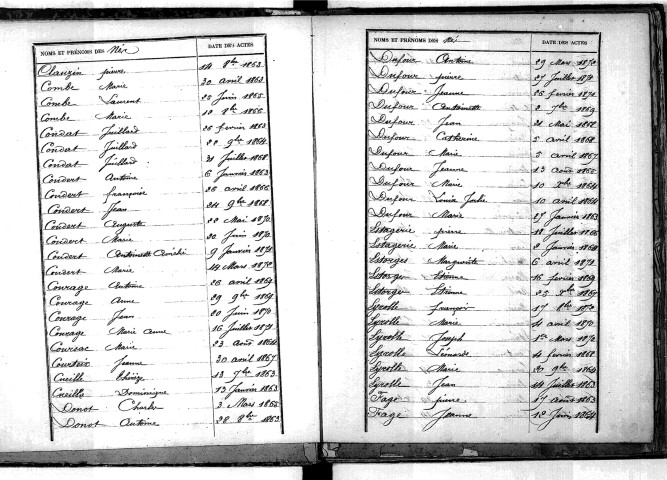 NOMS ET PRÉNOMS DES Nés DATE DES ACTES
Clauzin pierre 14 8bre 1863
Combe Marie 30 avril 1863
Combe Laurent 25 Juin 1865
Combe Marie 10 8bre 1866
Condat Juillard 26 fevrier 1863
Condat Juillard 20 9bre 1864
Condat Juillard 31 Juillet 1868
Condert Antoine 6 Janvier 1863
Condert françoise 26 avril 1866
Condert Jean 24 9bre 1868
Condert Auguste 20 Mai 1870
Condert Marie 20 Juin 1870
Condert Antoinette 9 Janvier 1871
Condert Marie 14 Mars 1872
Courage Antoine 26 avril 1867
Courage Anne 29 9bre 1867
Courage Jean 20 Juin 1870
Courage Marie Anne 16 Juillet 1871
Coursac Marie 23 Août 1864
Courteix Jeanne 30 avril 1867
Cueille thérèze 13 7bre 1863
Cueille Dominique 13 Janvier 1863
Donot Charles 3 Mars 1865
Donot Antoine 28 8bre 1863
NOMS ET PRÉNOMS DES Nés DATE DES ACTES
Dufour Antoine 29 Mars 1872
Dufour pierre 27 Juillet 1872
Dufour Jeanne 25 fevrier 1871
Dufour Antoinette 2 7bre 1869
Dufour Jean 21 Mai 1868
Dufour Catherine 5 avril 1868
Dufour Marie 5 avril 1867
Dufour Jeanne 13 Août 1865
Dufour Marie 10 Xbre 1864
Dufour Louise 10 avril 1864
Dufour Marie 27 Janvier 1863
Estagerie pierre 18 Juillet 1866
Estagerie Marie 2 Janvier 1868
Estorges Marguerite 6 avril 1872
Estorges Etienne 16 fevrier 1869
Estorges Etienne 25 Xbre 1867
Eyrolle françois 17 8bre 1872
Eyrolle Marie 4 avril 1870
Eyrolle Joseph 1er Mars 1870
Eyrolle Léonarde 4 fevrier 1868
Eyrolle Marie 20 9bre 1864
Eyrolle Jean 14 Juillet 1863
Fage pierre 17 Août 1863
Fage Jeanne 12 Juin 1864